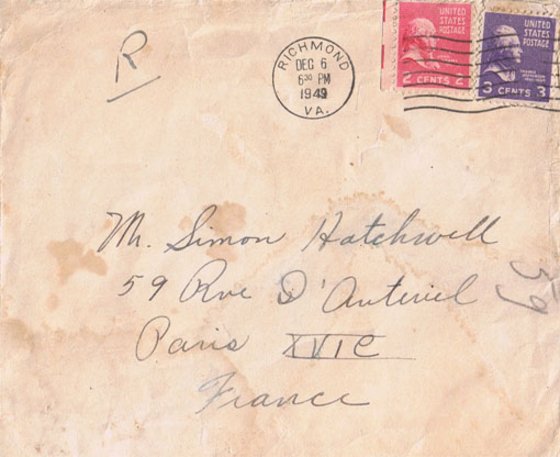 R
RICHMOND
DEC 6
6 30 PM
1949
VA.
UNITED
STATES
POSTAGE
2 CENTS 2
UNITED
STATES
POSTAGE
THOMAS
JEFFERSON
3 CENTS 3
Mr. Simon Hatchwell
59 Rue D'Auteuil
Paris XVIE
France
59